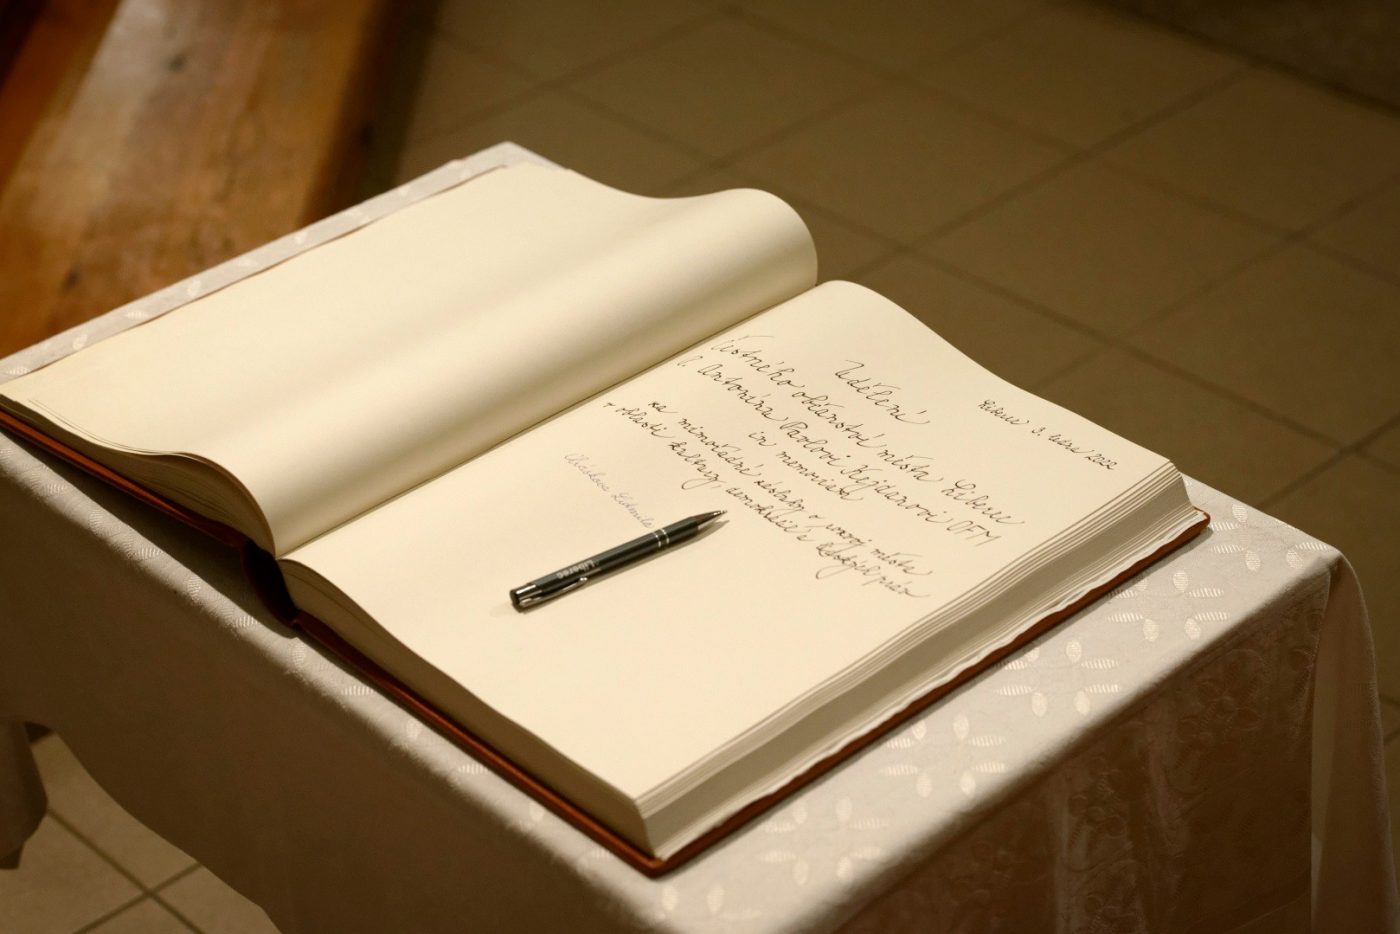 Liberec 3. září 2022
Udělení
Čestného občanství města Liberec
P. Antonínu Pavlovi Kejdanovi OFM
in memoriam
za mimořádné zásluhy o rozvoj města
v oblasti kultury, demokracie a lidských práv
Ludmila
Liberec